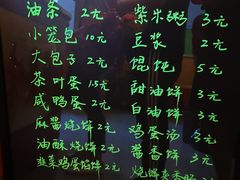 油条 2元
小笼包 10元
大包子 2元
茶叶蛋 1.5元
咸鸭蛋 2元
麻酱烧饼 2元
油酥烧饼 2元
韭菜鸡蛋馅饼 2元
紫米粥 3元
豆浆 2元
馄饨 5元
甜油饼 3元
白油饼 3元
鸡蛋汤 3元
酱香饼 3元
烧饼夹香肠